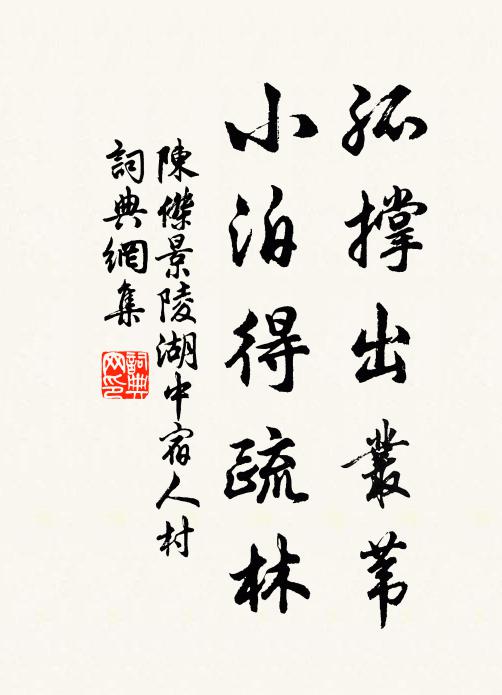 孤撐出叢葦
小泊得疏林
陳傑景陵湖中宿人村
詞典網集
詞典
网印